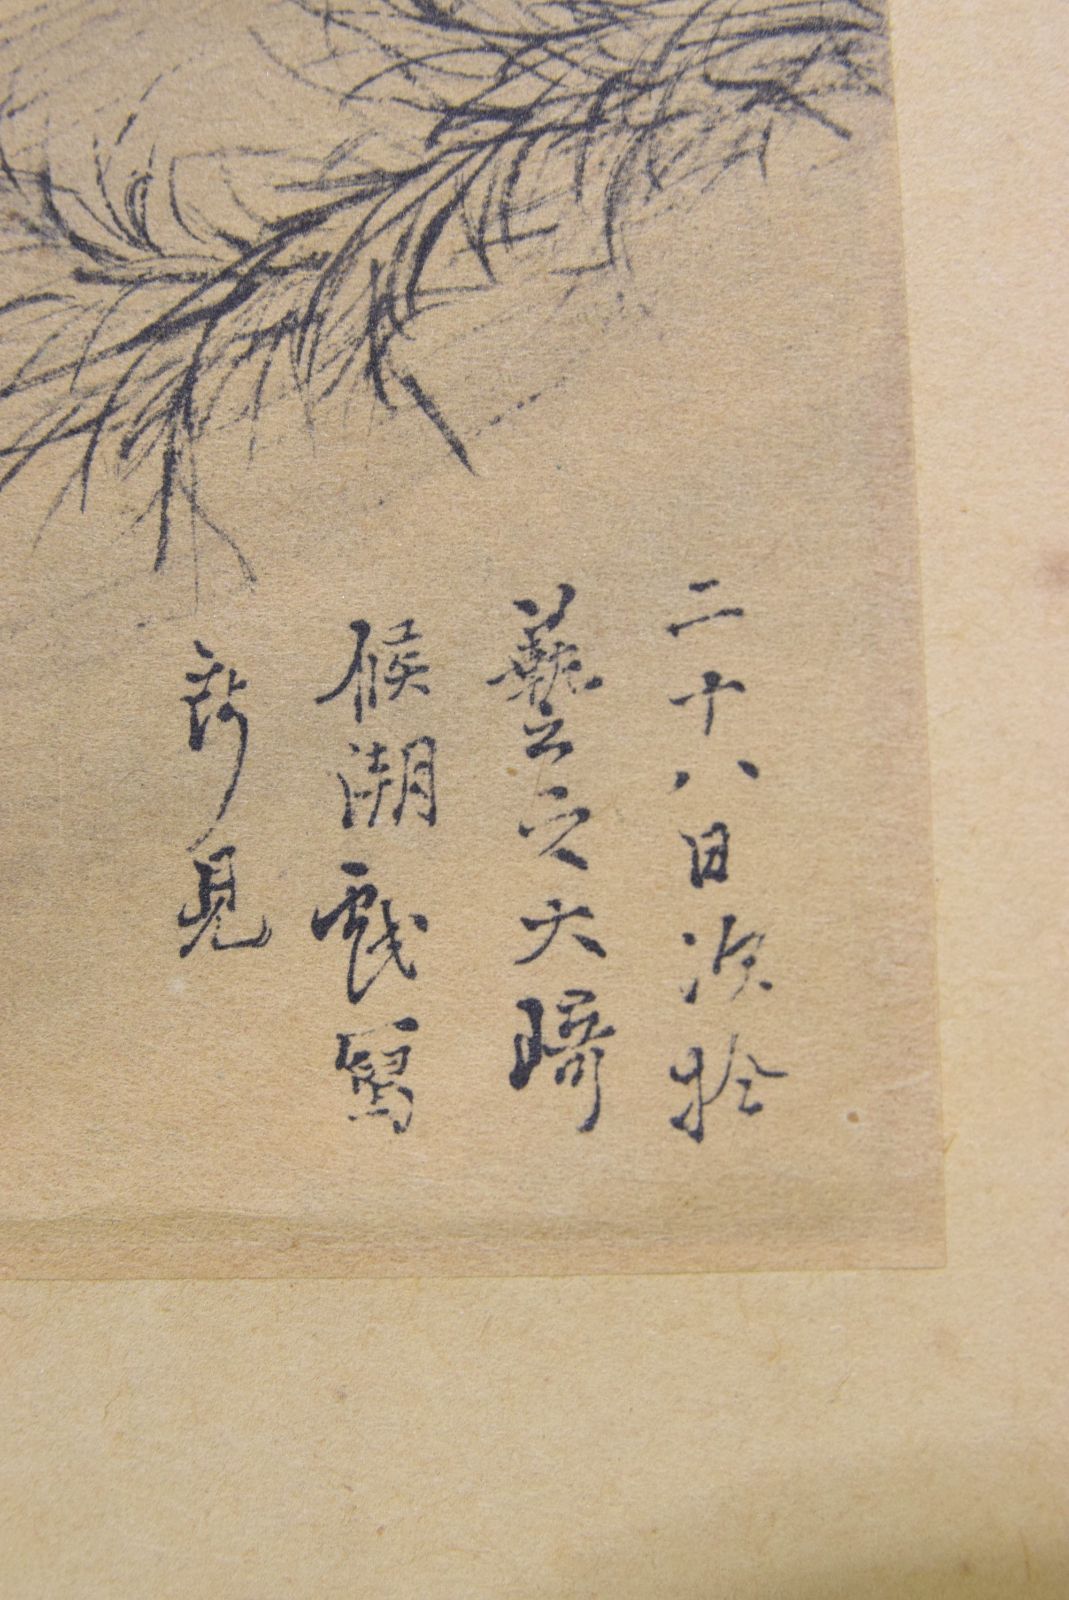 二十八日次於
藝之大崎
候潮戲寫
所見